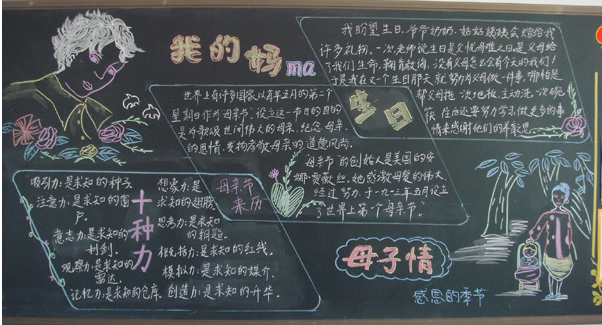 我的妈ma
我盼望生日,爷爷奶奶、姑姑姨姨会赠给我
许多礼物。一次老师说生日是父忧母难之日。是父母给
了我们生命,拥有教诲。没有父母怎么会有今天的我们!
于是我在又一个生日那天就努力为父母做一件事,哪怕是
帮父母拖一次地板,主动洗一次碗
筷,往后还要努力学习,做更多的事
情来感谢他们的养育恩。
生日
世界上有许多国家以每年五月的第一个
星期日作为母亲节。设立这一节日的目的
是为歌颂世间伟大的母亲,纪念母亲
的恩情,发扬孝敬母亲的道德风尚。
母亲节
来历
母亲节的创始人是美国的安
娜·贾薇丝,她感激母爱的伟大,
经过努力,于一九一三年五月设立
了世界上第一个母亲节。
十种力
吸引力:是求知的种子。
注意力:是求知的窗
户。
意志力:是求知的
利剑。
观察力:是求知的
雷达。
记忆力:是求知的仓库。
想象力:是
求知的翅膀。
思考力:是求知
的钥匙。
相先指力:是求知的红线。
模拟力:是求知的媒介。
创造力:是求知的升华。
母子情
感恩的季节